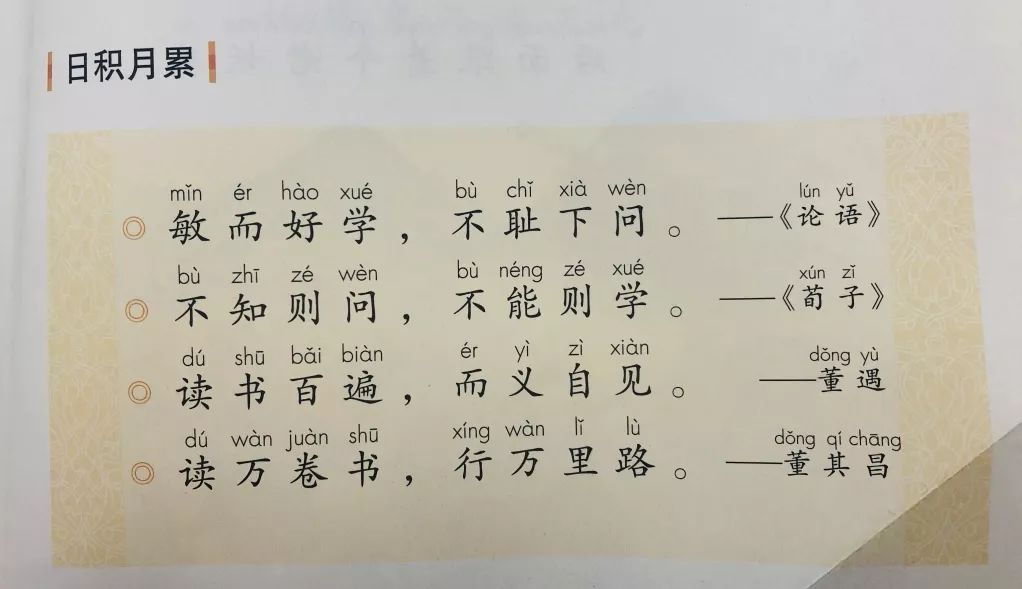 日积月累
mǐn ér hào xué bù chǐ xià wèn lún yǔ
◎ 敏而好学，不耻下问。——《论语》
bù zhī zé wèn bù néng zé xué xún zǐ
◎ 不知则问，不能则学。——《荀子》
dú shū bǎi biàn ér yì zì xiàn dǒng yù
◎ 读书百遍，而义自见。——董遇
dú wàn juàn shū xíng wàn lǐ lù dǒng qí chāng
◎ 读万卷书，行万里路。——董其昌